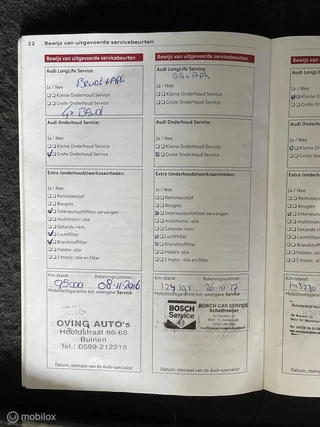 22 Bewijs van uitgevoerde servicebeurten
Bewijs van uitgevoerde servicebeurten
Audi LongLife Service:
Beurt + APK
Ja / Nee
Kleine Onderhoud Service
Grote Onderhoud Service
Audi Onderhoud Service:
Ja / Nee
Kleine Onderhoud Service
Grote Onderhoud Service
Extra (onderhouds)werkzaamheden:
Ja / Nee
Remvloeistof
Bougies
Interieurfilter vervangen
multitronic. olie
Getande riem
Luchtfilter
Brandstoffilter
Haldex. olie
S tronic. olie en filter
Km-stand:
Rekeningnummer:
95000
08-11-2016
Mobiliteitsgarantie tot: weergave Service
OVING AUTO's
Hoofdstraat 66-68
Buinen
Tel.: 0599-212218
Datum, stempel van de Audi-specialist
Bewijs van uitgevoerde servicebeurten
Audi LongLife Service:
GB + APK
Ja / Nee
Kleine Onderhoud Service
Grote Onderhoud Service
Audi Onderhoud Service:
Ja / Nee
Kleine Onderhoud Service
Grote Onderhoud Service
Extra (onderhouds)werkzaamheden:
Ja / Nee
Remvloeistof
Bougies
Interieurfilter vervangen
multitronic. olie
Getande riem
Luchtfilter
Brandstoffilter
Haldex. olie
S tronic. olie en filter
Km-stand:
Rekeningnummer:
26-10-17
Mobiliteitsgarantie tot: weergave Service
BOSCH
Service
BOSCH CAR SERVICE
Datum, stempel van de Audi-specialist
Bewijs van
Audi LongLife
Ja / Nee
Kleine O
Grote O
Audi Onderho
Ja / Nee
Kleine
Grote
Extra (onder
Ja / Nee
Remv
Bougi
Interi
multi
Getan
Lucht
Brand
Halde
S tron
Km-stand:
Mobiliteits
Datum, ste
mobilox